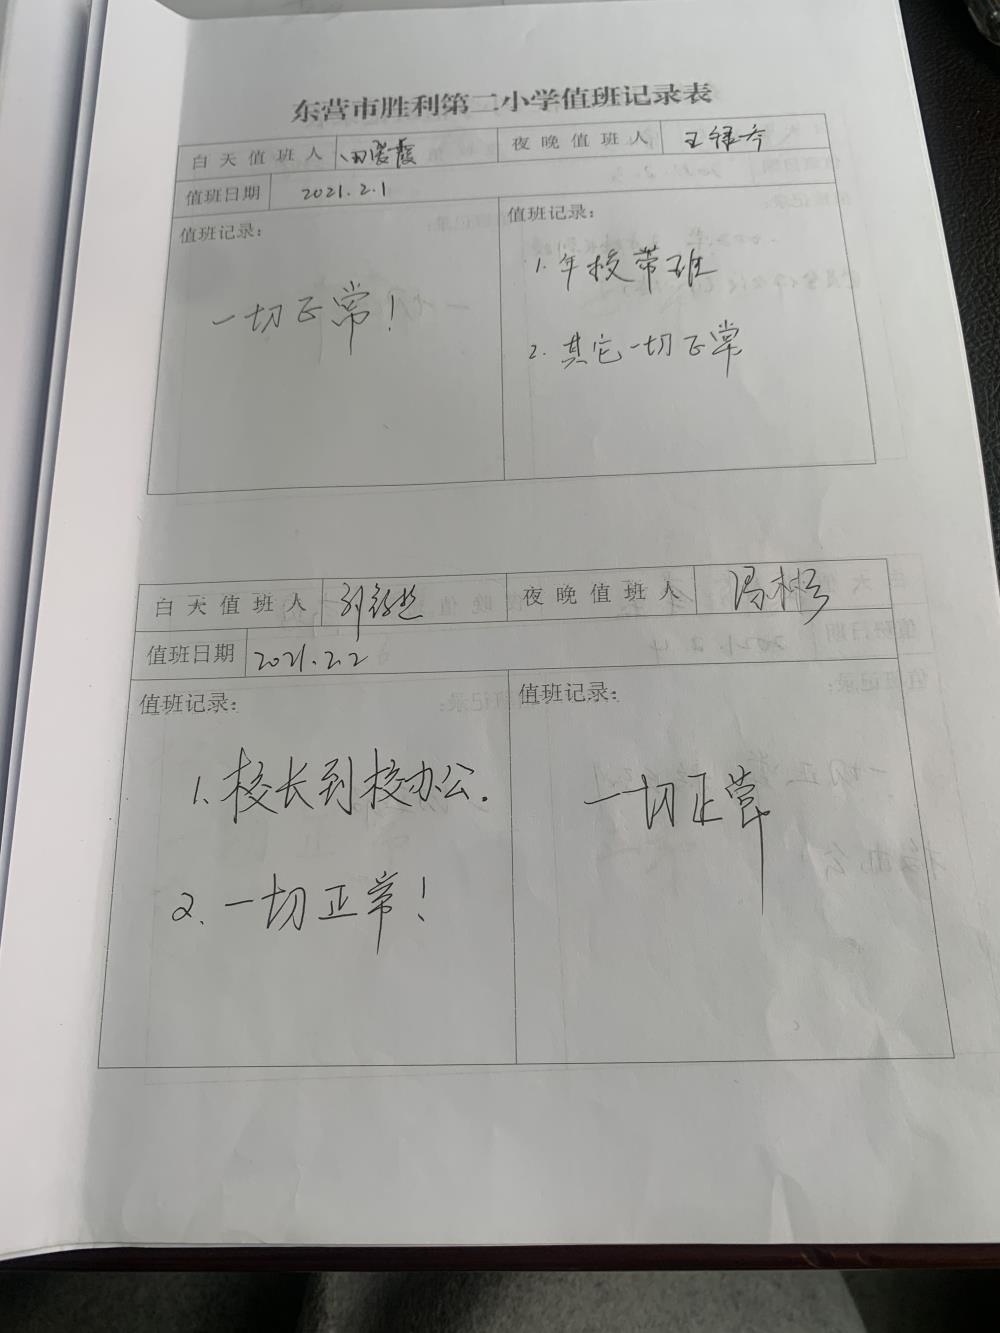 东营市胜利第二小学值班记录表
白天值班人 田爱霞 夜晚值班人
值班日期 2021.2.1
值班记录： 值班记录：
一切正常！
1. 年校带班
2. 其它一切正常
白天值班人 夜晚值班人
值班日期 2021.2.2
值班记录： 值班记录：
1. 校长到校办公.
一切正常
2. 一切正常！